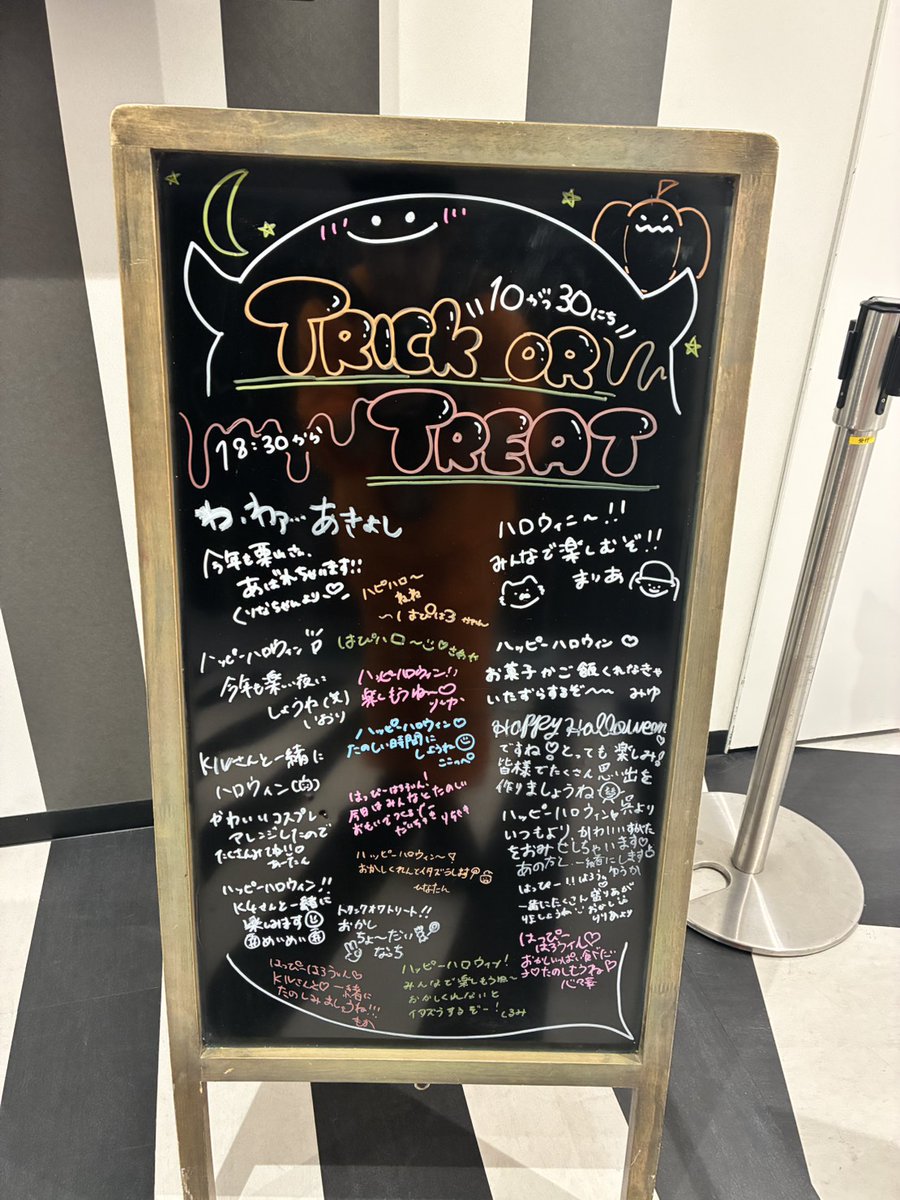 10がつ30にち
TRICK OR
TREAT
18:30から
わ、わァ…あきよし
今年も
あばれちゃいます!!
くりなちゃんより♡
ハッピーハロウィン
今年も楽しい夜に
しょうや(笑)
いおり
と一緒に
ハロウィン
かわいいコスプレ
アレンジしたので
たくさんみてね!!
ハッピーハロウィン!!
と一緒に
楽しみます
めいめい
ハピハロ〜
ねね
はぴはろ
はぴハロ〜
ハッピーハロウィン!!
楽しもうね〜♡
ハッピーハロウィン♡
たのしい時間に
しようね
はっぴーはろうぃん!
今日はみんなとたのしい
おもいでつくるぞー
ハッピーハロウィン〜♡
おかしくれんとイタズラします
ひなたん
トリックオワトリート!!
おかし
ちょーだい
なっち
はっぴーはろうぃん♡
一緒に
たのしみましょうね!!!
ハッピーハロウィン!
みんなで楽しもうね〜
おかしくれないと
イタズラするぞー!
くるみ
ハロウィーン〜!!
みんなで楽しむぞ!!
まりあ
ハッピーハロウィン ♡
お菓子かご飯くれなきゃ
いたずらするぞ〜〜 みゆ
Happy Halloween
ですね♡とっても楽しみ!
皆様でたくさん思い出を
作りましょうね
ハッピーハロウィン
いつもよりかわいいすがた
をおみせしちゃいます
あの方と一緒にします
ゆうか
はっぴーはろうぃん
一緒にたくさん盛りあが
りましょうね
りりあより
はっぴー
はろうぃん♡
おかしいっぱい食べた
たのしもうね♡